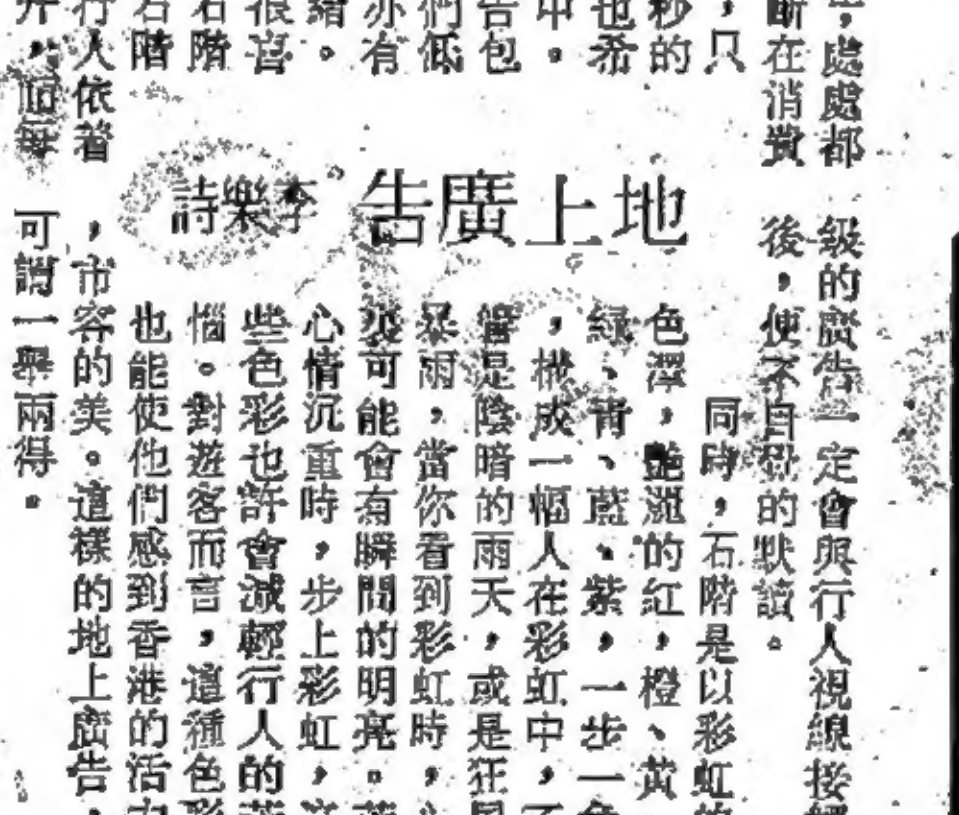 ，處處都
斷在消費
，只
秒的
也希
中。
告包
們低
亦有
緒。
很喜
石階
石階
行人依着
，但每
地上廣告
李樂詩
級的廣告一定會與行人視線接觸
後，便不自覺的默讀。
同時，石階是以彩虹的
色澤，艷麗的紅，橙、黃
綠、青、藍、紫，一步一色
，構成一幅人在彩虹中，不
管是陰暗的雨天，或是狂風
暴雨，當你看到彩虹時，心
裏可能會有瞬間的明亮。
心情沉重時，步上彩虹，這
些色彩也許會減輕行人的苦
惱。對遊客而言，這種色彩
也能使他們感到香港的活力
，市容的美。這樣的地上廣告，
可謂一舉兩得。